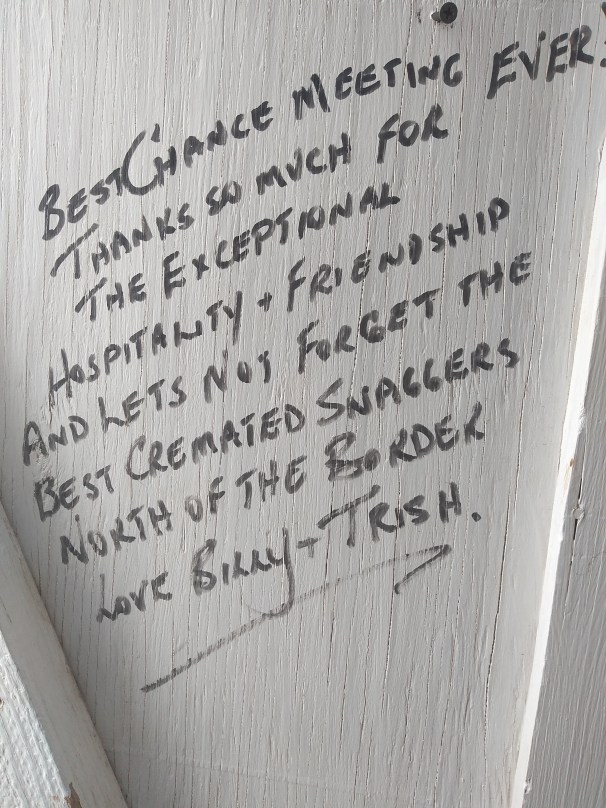 BEST CHANCE MEETING EVER.
THANKS SO MUCH FOR
THE EXCEPTIONAL
HOSPITALITY + FRIENDSHIP
AND LETS NOT FORGET THE
BEST CREMATED SNAGGERS
NORTH OF THE BORDER
LOVE BILLY + TRISH.